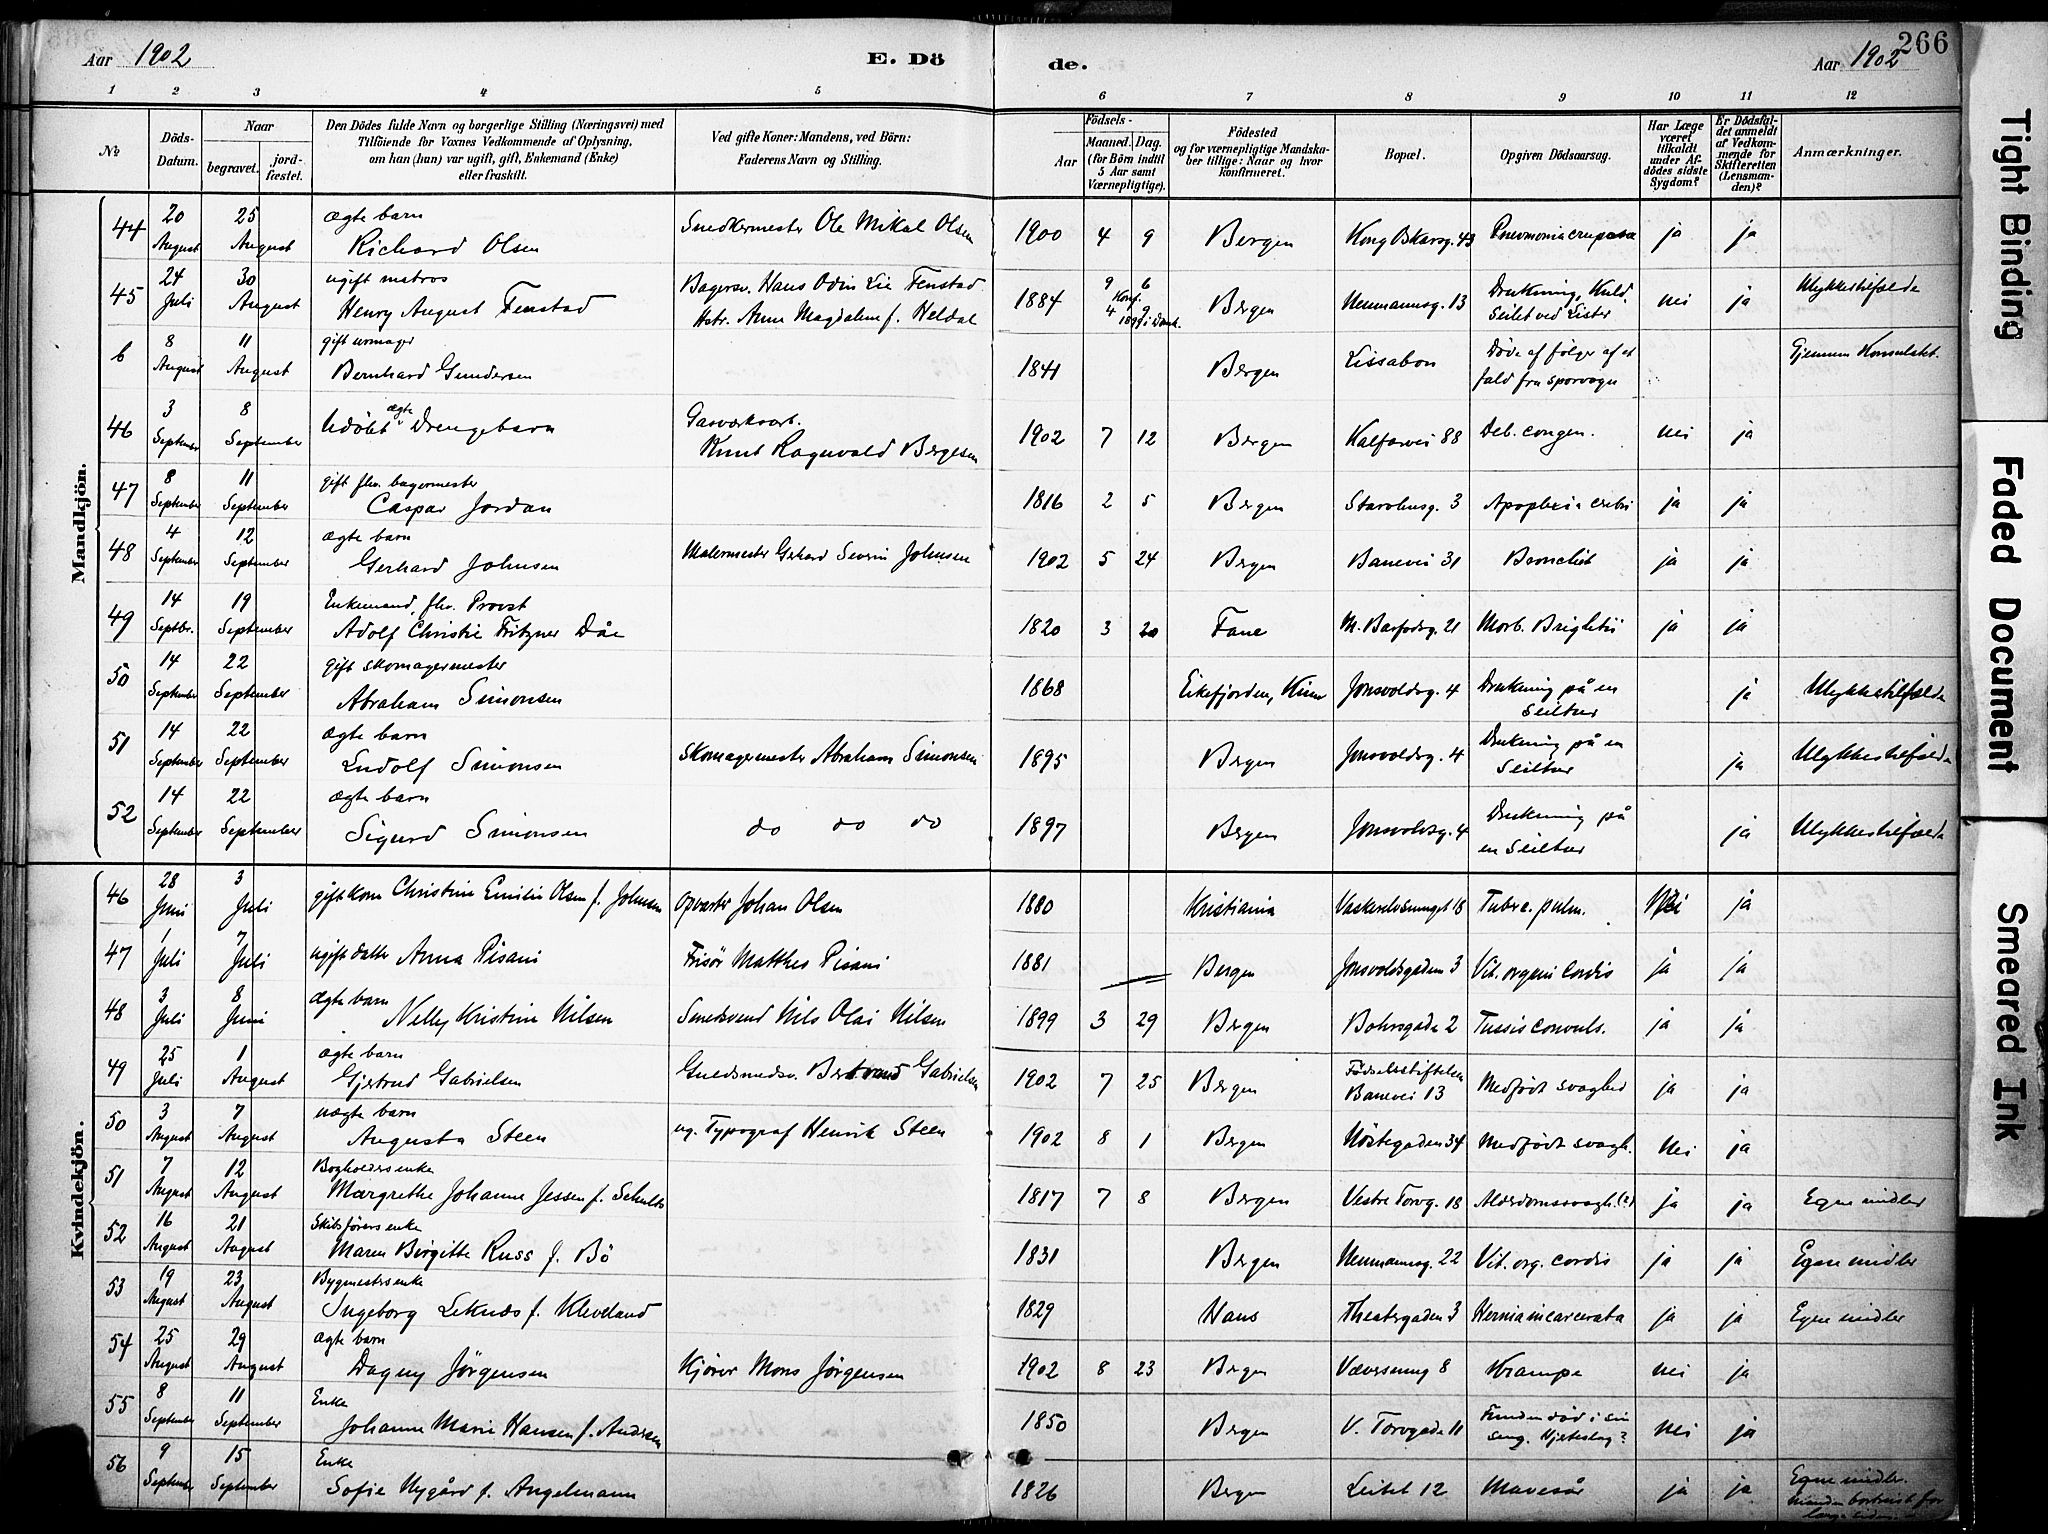 Aar 1902
E. Dö
de.
Aar 1902
266
1 2 3 4 5 6 7 8 9 10 11 12
No
Döds-Datum.
Naar
begravet.
jord-fæstet.
Den Dödes fulde Navn og borgerlige Stilling (Næringsvei) med
Tilföiende for Voxnes Vedkommende af Oplysning,
om han (hun) var ugift, gift, Enkemand (Enke)
eller fraskilt.
Ved gifte Koner: Mandens, ved Börn:
Faderens Navn og Stilling.
Födsels-
Aar
Maaned. Dag.
(for Börn indtil
5 Aar samt
Værnepligtige).
Födested
og for værnepligtige Mandska-
ber tillige: Naar og hvor
konfirmeret.
Bopæl.
Opgiven Dödsaarsag.
Har Læge
været
tilkaldt
under Af-
dödes sidste
Sygdom?
Er Dödsfal-
det anmeldt
af Vedkom-
mende for
Skifteretten
(Lensman-
den)?
Anmærkninger.
Mandkjön.
44 20 August 25 August ægte barn Richard Olsen Snedkermester Ole Mikal Olsen 1900 4 9 Bergen Kong Oskarsg. 43 Pneumonia cruposa ja ja
45 24 Juli 30 August ugift matros Henry August Fenstad Bagersv. Hans Odin Lie Fenstad Hstr. Anne Magdalene f. Heldal 1884 9 6 Konf. 4 9 Bergen Neumannsg. 13 Drukning, Kuld. Seilet ved Lister nei ja Ulykkestilfælde
6 8 August 11 August gift urmager Bernhard Gundersen 1841 Bergen Lissabon Døde af følger af et fald fra sporvogn Gjennem Konsulatet.
46 3 September 8 September Udöbt ægte Drengebarn Gasværksarb. Knut Ragnvald Bergesen 1902 7 12 Bergen Kalfarvei 88 Deb. congen. nei ja
47 8 September 11 September gift flv. bagermester Caspar Jordan 1816 2 5 Bergen Starvhusg. 3 Apoplexia cerebri ja ja
48 4 September 12 September ægte barn Gerhard Johnsen Malermester Gerhard Severin Johnsen 1902 5 24 Bergen Banevei 31 Bronchit ja ja
49 14 Septbr. 19 September Enkemand, flv. Provst Adolf Christie Fritzner Dåe 1820 3 20 Fane M. Barfodsg. 21 Morb. Brightii ja ja
50 14 September 22 September gift skomagermester Abraham Simonsen 1868 Eikefjorden, Kinn Jonsvoldsg. 4 Drukning på en Seiltur ja Ulykkestilfælde
51 14 September 22 September ægte barn Ludolf Simonsen Skomagermester Abraham Simonsen 1895 Bergen Jonsvoldsg. 4 Drukning på en Seiltur ja Ulykkestilfælde
52 14 September 22 September ægte barn Sigurd Simonsen do do do 1897 Bergen Jonsvoldsg. 4 Drukning på en Seiltur ja Ulykkestilfælde
Kvindekjön.
46 28 Juni 3 Juli gift kone Christine Emilie Olsen f. Johnsen Opvarter Johan Olsen 1880 Kristiania 18 Tuberc. pulm. Nei ja
47 1 Juli 7 Juli ugift datter Anna Pisani Frisør Matthes Pisani 1881 Bergen Jonsvoldsgaden 3 Vit. organi cordis ja ja
48 3 Juli 8 Juni ægte barn Nelly Kristine Nilsen Smedsvend Nils Olai Nilsen 1899 3 29 Bergen Bohrsgade 2 Tussis convuls. ja ja
49 25 Juli 1 August ægte barn Gjertrud Gabrielsen Guldsmedsv. Gabrielsen 1902 7 25 Bergen Fødselsstiftelsen Banevei 13 Medfødt svaghed ja ja
50 3 August 7 August uægte barn Augusta Steen ug. Typograf Henrik Steen 1902 8 1 Bergen Nöstegaden 34 Medfødt svagh. Nei ja
51 7 August 12 August Bogholders enke Margrethe Johanne Jessen f. Schultz 1817 7 8 Bergen Vestre Torvg. 18 Alderdomssvagh. (?) ja ja Egne midler
52 16 August 21 August Skibsførers enke Maren Birgitte Russ f. Bö 1831 Bergen Neumannsg. 22 Vit. org. cordis ja ja Egne midler
53 19 August 23 August Bygmesters enke Ingeborg Leknæs f. Kleveland 1829 Haus Theatergaden 3 Hernia incarcerata ja ja Egne midler
54 25 August 29 August ægte barn Dagny Jörgensen Kjörer Mons Jörgensen 1902 8 23 Bergen 8 Krampe nei ja
55 8 September 11 September Enke Johanne Marie Hansen f. Andersen 1850 Bergen V. Torvgade 11 Funden död i sin seng. Hjerteslag? nei ja
56 9 September 15 September Enke Sofie Nygård f. Angelmann 1826 Bergen Leitet 12 Mavesår ja ja Egne midler. Manden bortreist for
Tight Binding
Faded Document
Smeared Ink